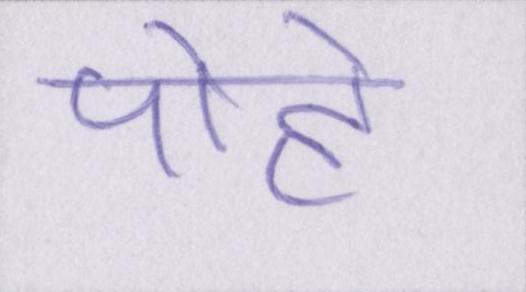 पोहे